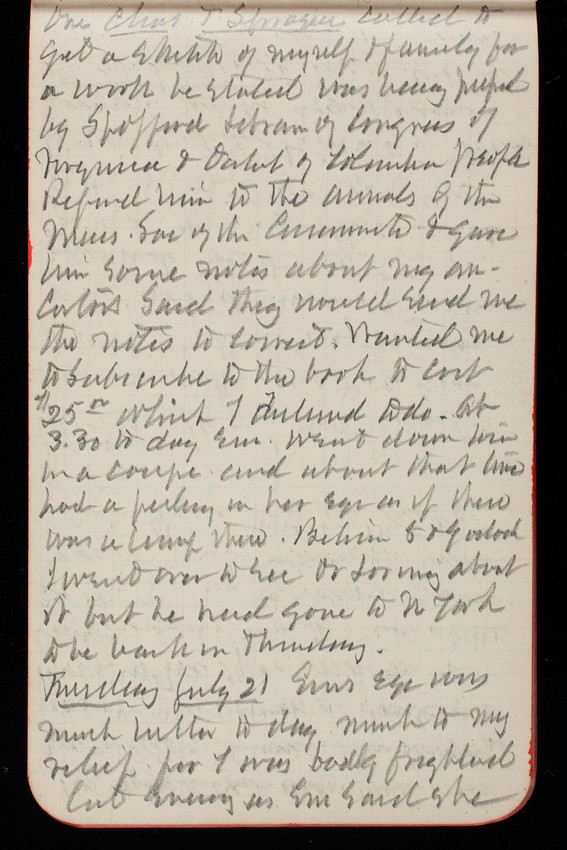 One Chas. T Sprague called to
get a sketch of myself & family for
a work he stated was being prepd
by Spofford Libran of Congress of
Virginia & Datst of Columbia people
Referred him to the annals of the
Mass. Soc of the Cincinnati & gave
him some notes about my an-
cestors Said they would send me
the notes to correct. Wanted me
to subscribe to the book to cost
$25 00 which I declined to do. At
3.30 to day Em. went down town
in a coupe and about that time
had a feeling in her eye as if there
was a lump there. Between 8 & 9 oclock
I went over to see Dr Loring about
it but he had gone to N York
to be back on Thursday.
Tuesday July 21 Ems eye was
much better to day much to my
relief for I was badly frightened
last evening as Em said she